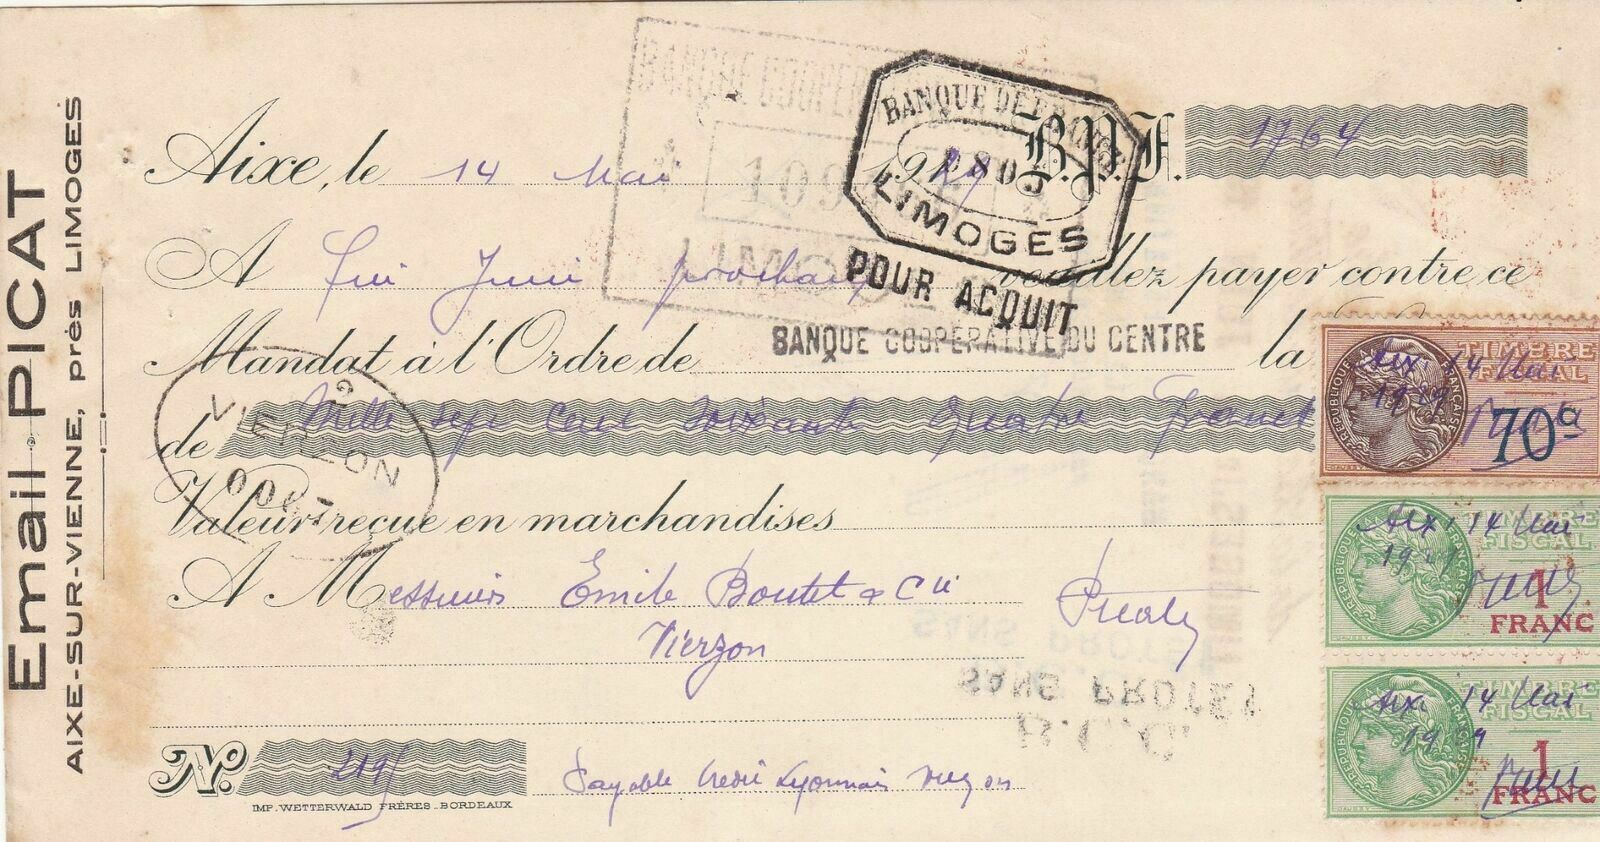 Email PICAT
AIXE-SUR-VIENNE, près LIMOGES
Aixe, le 14 Mai 1929 B.P.F. 1764
BANQUE DE FRANCE
LIMOGES
A fin Juin prochain veuillez payer contre ce
POUR ACQUIT
Mandat à l'Ordre de BANQUE COOPÉRATIVE DU CENTRE la
de Mille sept cent soixante quatre Francs
VIERZON
Valeur reçue en marchandises
A Messieurs Emile Boutet & Cie
Vierzon
SANS PROTET
B.C.C.
No. 219
Payable Crédit Lyonnais Vierzon
IMP. WETTERWALD FRÈRES_BORDEAUX
TIMBRE FISCAL
REPUBLIQUE FRANÇAISE
Aixe 14 Mai
1929
70c
TIMBRE FISCAL
REPUBLIQUE FRANÇAISE
Aixe 14 Mai
1929
1 FRANC
TIMBRE FISCAL
REPUBLIQUE FRANÇAISE
Aixe 14 Mai
1929
1 FRANC